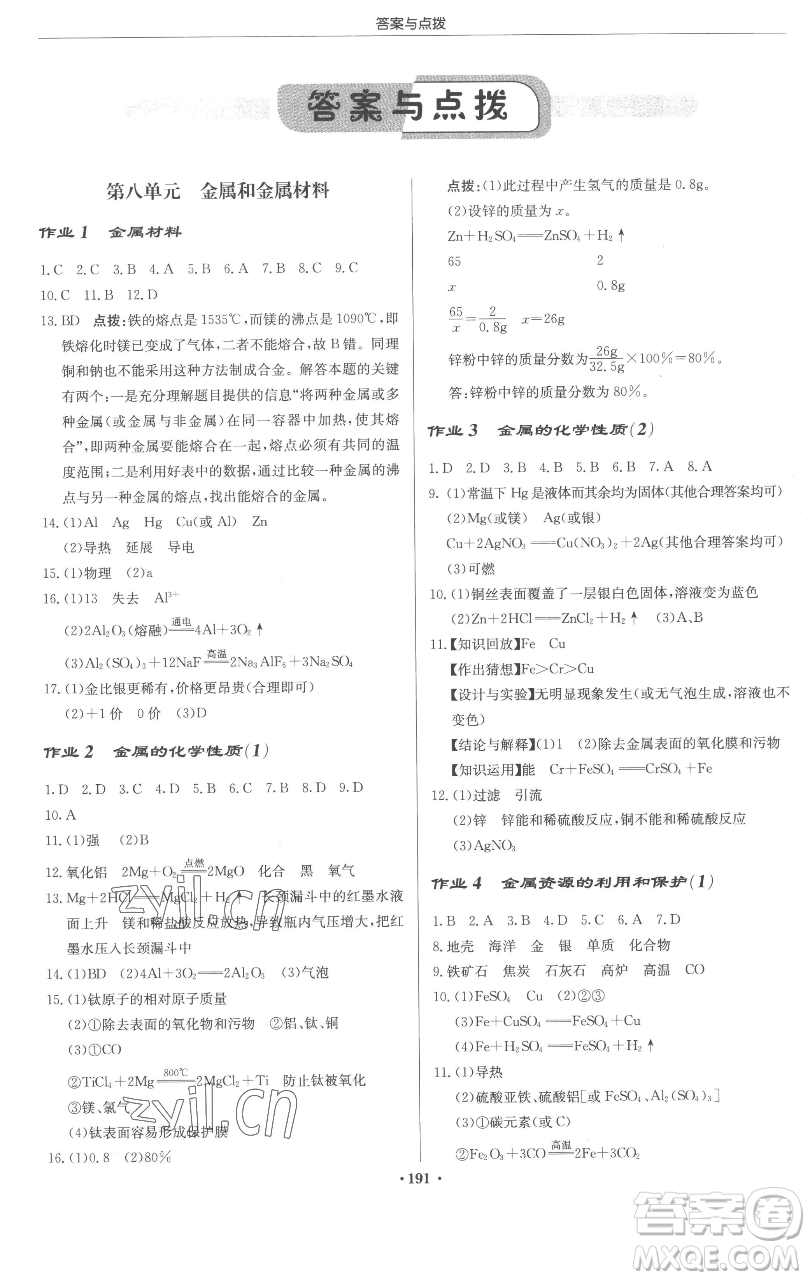 答案与点拨
答案与点拨
第八单元　金属和金属材料
作业 1　金属材料
1.C　2.C　3.B　4.A　5.A　6.A　7.B　8.C　9.C
10.C　11.B　12.D
13.BD　点拨:铁的熔点是1535℃,而镁的沸点是1090℃,即
铁熔化时镁已变成了气体,二者不能熔合,故B错。同理
铜和钠也不能采用这种方法制成合金。解答本题的关键
有两个:一是充分理解题目提供的信息“将两种金属或多
种金属(或金属与非金属)在同一容器中加热,使其熔
合”,即两种金属要能熔合在一起,熔点必须有共同的温
度范围;二是利用好表中的数据,通过比较一种金属的沸
点与另一种金属的熔点,找出能熔合的金属。
14.(1)Al　Ag　Hg　Cu(或Al)　Zn
(2)导热　延展　导电
15.(1)物理　(2)a
16.(1)13　失去　Al³⁺
(2)2Al₂O₃(熔融)══通电══4Al+3O₂↑
(3)Al₂(SO₄)₃+12NaF══高温══2Na₃AlF₆+3Na₂SO₄
17.(1)金比银更稀有,价格更昂贵(合理即可)
(2)+1价　0价　(3)D
作业 2　金属的化学性质(1)
1.D　2.D　3.C　4.C　5.C　6.D　7.B　8.D　9.D
10.A
11.(1)强　(2)B
12.氧化铝　2Mg+O₂══点燃══2MgO　化合　黑　氧气
13.Mg+2HCl══MgCl₂+H₂↑　长颈漏斗中的红墨水液
面上升　镁和稀盐酸反应放热,导致瓶内气压增大,把红
墨水压入长颈漏斗中
14.(1)BD　(2)4Al+3O₂══2Al₂O₃　(3)气泡
15.(1)钛原子的相对原子质量
(2)①除去表面的氧化物和污物　②铝、钛、铜
(3)①CO
②TiCl₄+2Mg══800℃══2MgCl₂+Ti　防止钛被氧化
③镁、氯、氧
(4)钛表面容易形成保护膜
16.(1)0.8　(2)80%
点拨:(1)此过程中产生氢气的质量是0.8g。
(2)设锌的质量为x。
Zn+H₂SO₄══ZnSO₄+H₂↑
65　2
x　0.8g
65/x=2/0.8g　x=26g
锌粉中锌的质量分数为26g/32.5g×100%=80%。
答:锌粉中锌的质量分数为80%。
作业 3　金属的化学性质(2)
1.D　2.A　3.D　4.A　5.B　6.D　7.A　8.A
9.(1)常温下Hg是液体而其余均为固体(其他合理答案均可)
(2)Mg(或镁)　Ag(或银)
Cu+2AgNO₃══Cu(NO₃)₂+2Ag(其他合理答案均可)
(3)可燃
10.(1)铜丝表面覆盖了一层银白色固体,溶液变为蓝色
(2)Zn+2HCl══ZnCl₂+H₂↑　(3)A、B
11.【知识回放】Fe　Cu
【作出猜想】Fe>Cr>Cu
【设计与实验】无明显现象发生(或无气泡生成,溶液也不
变色)
【结论与解释】(1)1　(2)除去金属表面的氧化膜和污物
【知识运用】能　Cr+FeSO₄══CrSO₄+Fe
12.(1)过滤　引流
(2)锌　锌能和稀硫酸反应,铜不能和稀硫酸反应
(3)AgNO₃
作业 4　金属资源的利用和保护(1)
1.B　2.A　3.D　4.C　5.A　6.A　7.D
8.地壳　海洋　金　银　单质　化合物
9.铁矿石　焦炭　石灰石　高炉　高温　CO
10.(1)FeSO₄　Cu　(2)②③
(3)Fe+CuSO₄══FeSO₄+Cu
(4)Fe+H₂SO₄══FeSO₄+H₂↑
11.(1)导热
(2)硫酸亚铁、硫酸铝[或FeSO₄、Al₂(SO₄)₃]
(3)①碳元素(或C)
②Fe₂O₃+3CO══高温══2Fe+3CO₂
· 191 ·
zyjl.cn
zyjl.cn
答案圈
MXQE.COM